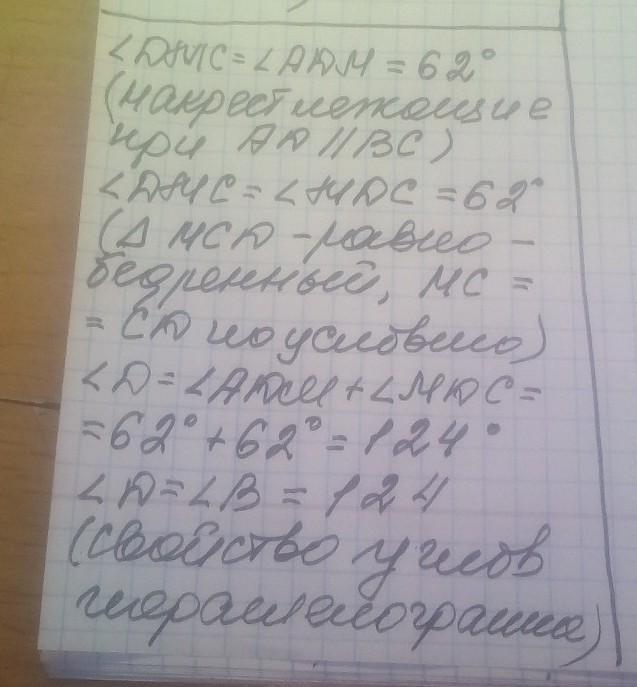 ∠DMC = ∠ADM = 62°
(накрест лежащие
при AD || BC)
∠DMC = ∠MDC = 62°
(Δ MCD - равно -
бедренный, MC =
= CD по условию)
∠D = ∠ADM + ∠MDC =
= 62° + 62° = 124°
∠D = ∠B = 124
(свойство углов
параллелограмма)